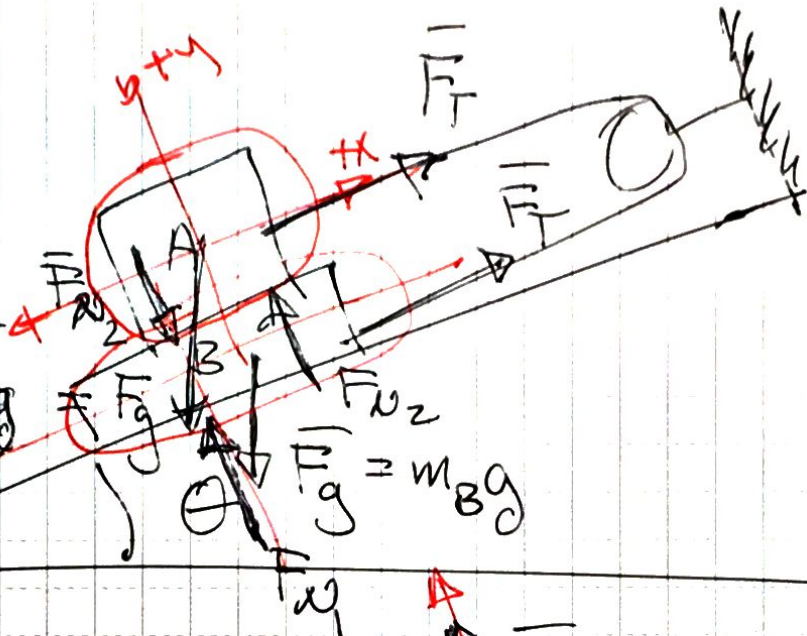 +y
F_T
+x
F_T
A
F_N2
B
g = F_g
F_N2
F_g = m_B g
θ
F_N